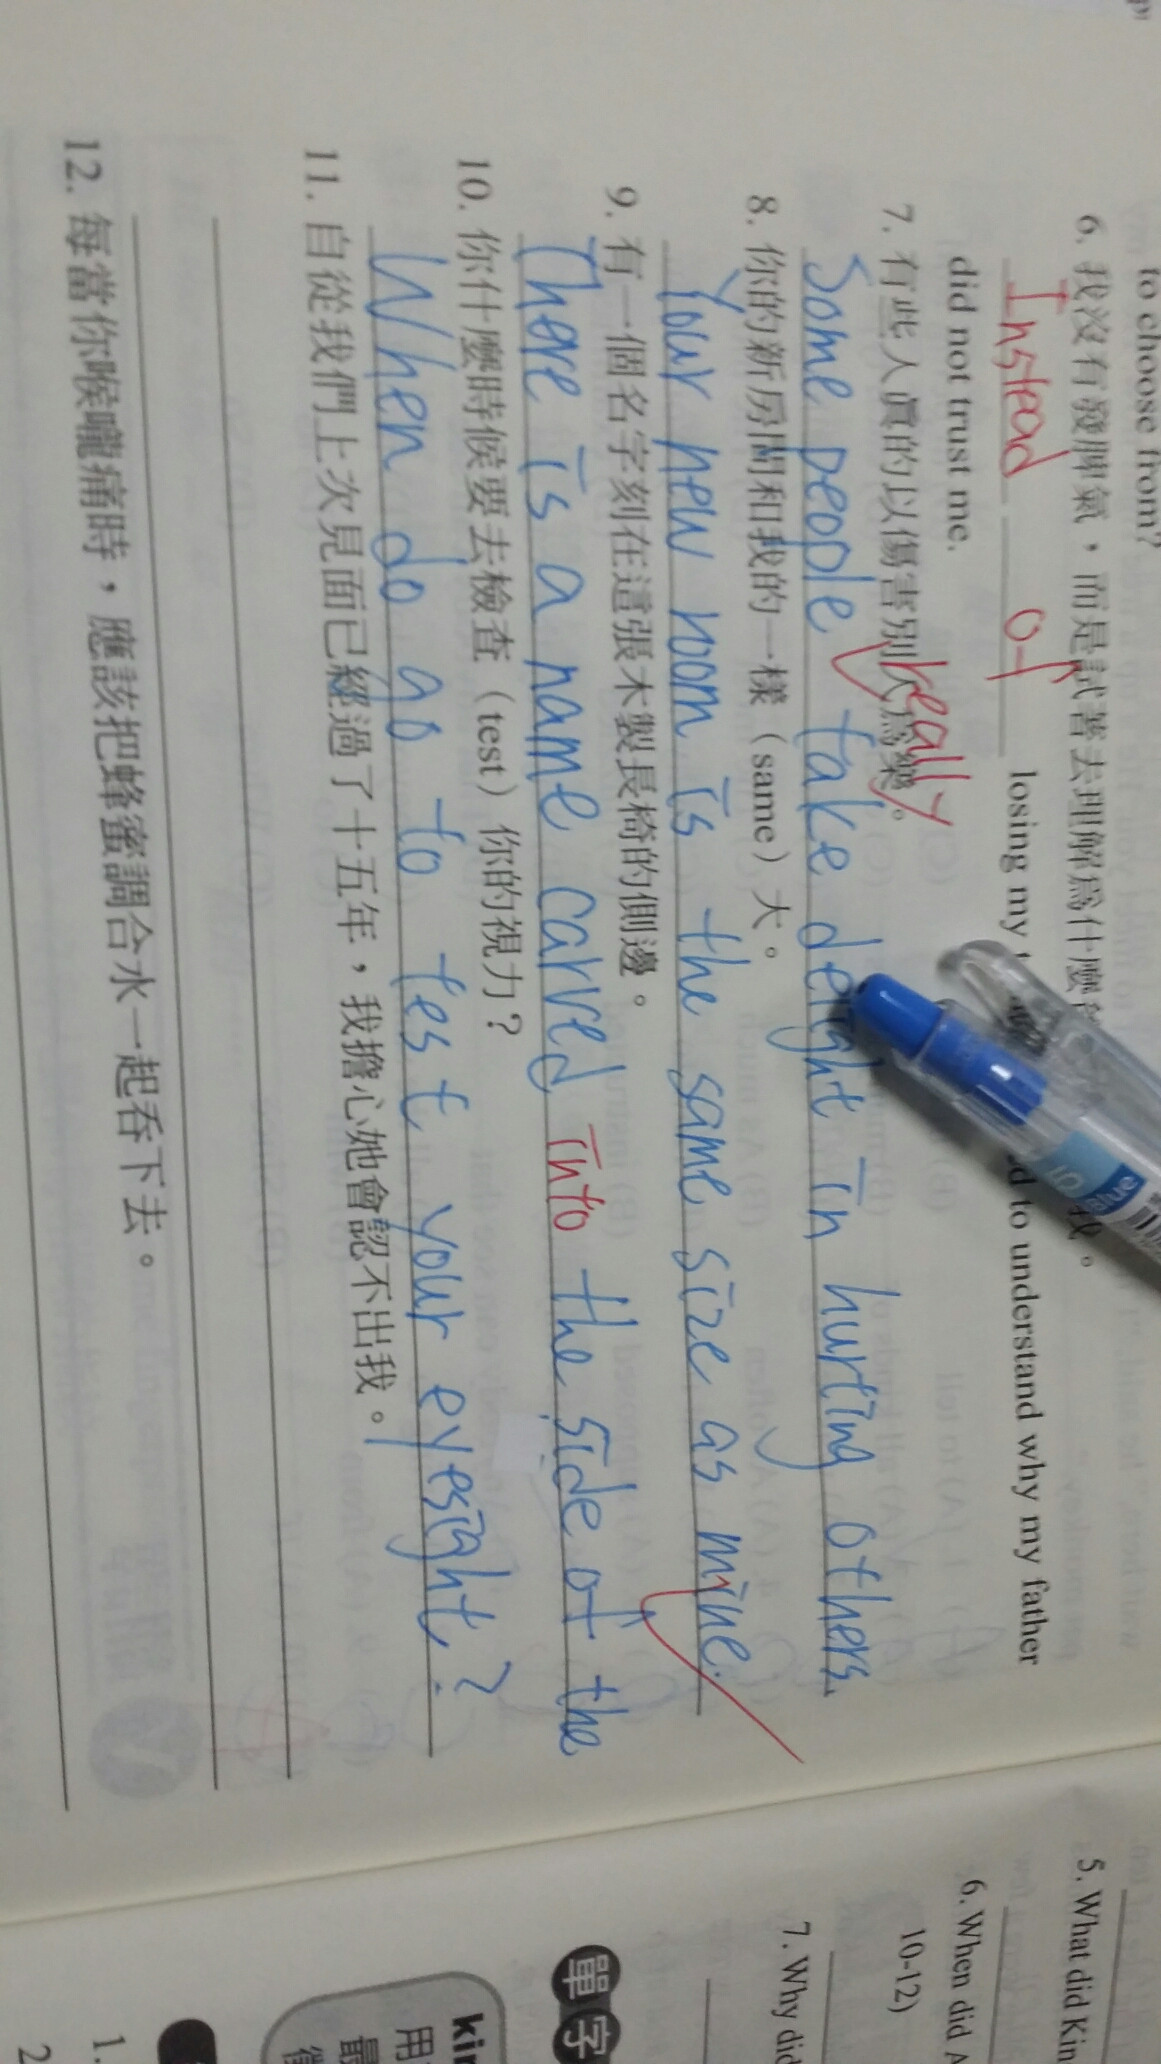 to choose from?
6. 我沒有發脾氣，而是試著去理解為什麼 我。
Instead of losing my to understand why my father
did not trust me.
7. 有些人真的以傷害別人為樂。
really
Some people take delight in hurting others.
8. 你的新房間和我的一樣（same）大。
Your new room is the same size as mine.
9. 有一個名字刻在這張木製長椅的側邊。
There is a name carved into the side of the
10. 你什麼時候要去檢查（test）你的視力？
When do go to test your eyesight?
11. 自從我們上次見面已經過了十五年，我擔心她會認不出我。
12. 每當你喉嚨痛時，應該把蜂蜜調合水一起吞下去。
Blue
5. What did Kin
6. When did A
10-12)
7. Why did
單字
kin
用
最
1.
2